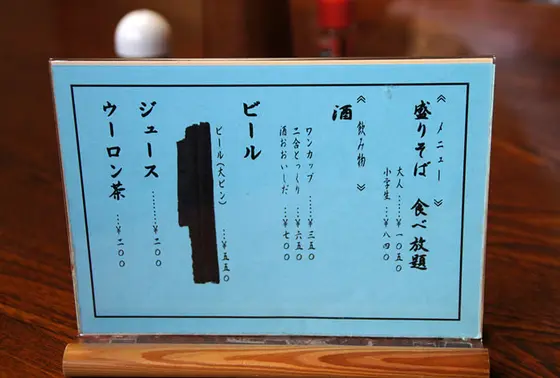 《 メニュー 》
盛りそば 食べ放題
大人……¥一〇五〇
小学生…¥八四〇
《 飲み物 》
酒
ワンカップ……¥三五〇
二合とっくり…¥六五〇
酒おおいしだ…¥七〇〇
ビール
ビール(大ビン)…¥五五〇
ジュース………¥二〇〇
ウーロン茶…¥二〇〇